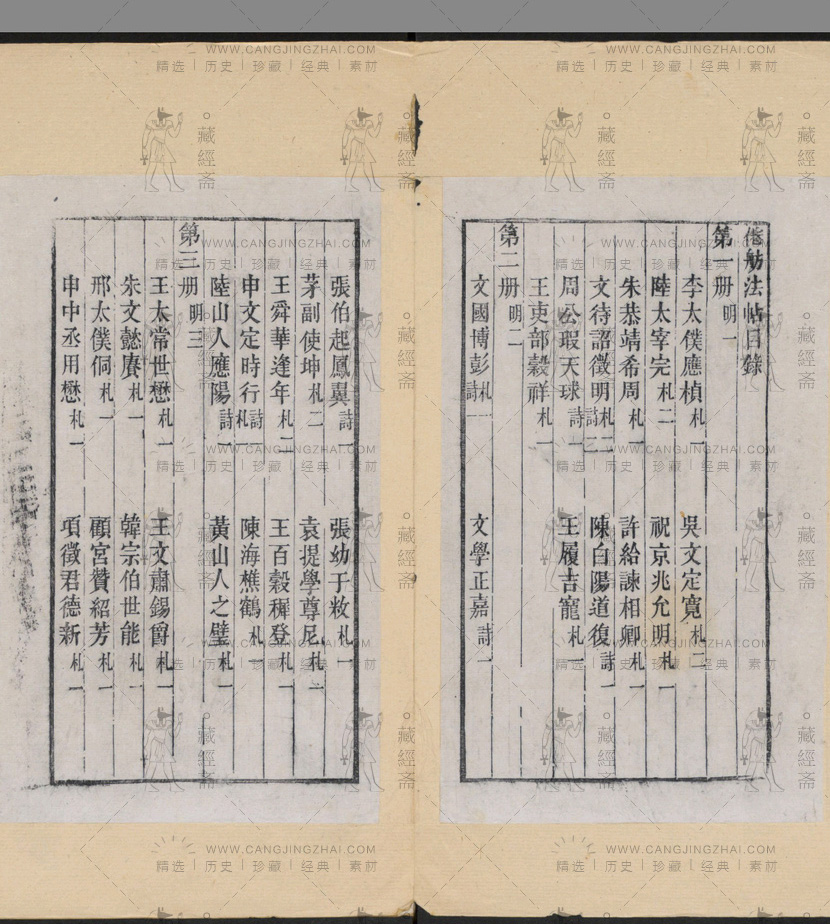 偕舫法帖目錄
第一册 明一
李太僕應楨 札一 吳文定寬 札二
陸太宰完 札二 祝京兆允明 札一
朱恭靖希周 札一 許給諫相卿 札一
文待詔徵明 札二 詩二 陳白陽道復 詩一
周公瑕天球 詩一 王履吉寵 札一
王吏部穀祥 札一
第二册 明二
文國博彭 札一 詩一 文學正嘉 詩一
張伯起鳳翼 詩一 張幼于敉 札一
茅副使坤 札二 袁提學尊尼 札一
王舜華逢年 札二 王百穀穉登 札一
申文定時行 詩一 札一 陳海樵鶴 札一
陸山人應陽 詩一 黃山人之璧 札一
第三册 明三
王太常世懋 札一 王文肅錫爵 札一
朱文懿賡 札一 韓宗伯世能 札一
邢太僕侗 札一 顧宮贊紹芳 札一
申中丞用懋 札一 項徵君德新 札一
WWW.CANGJINGZHAI.COM
精选 | 历史 | 珍藏 | 经典 | 素材
藏經斋